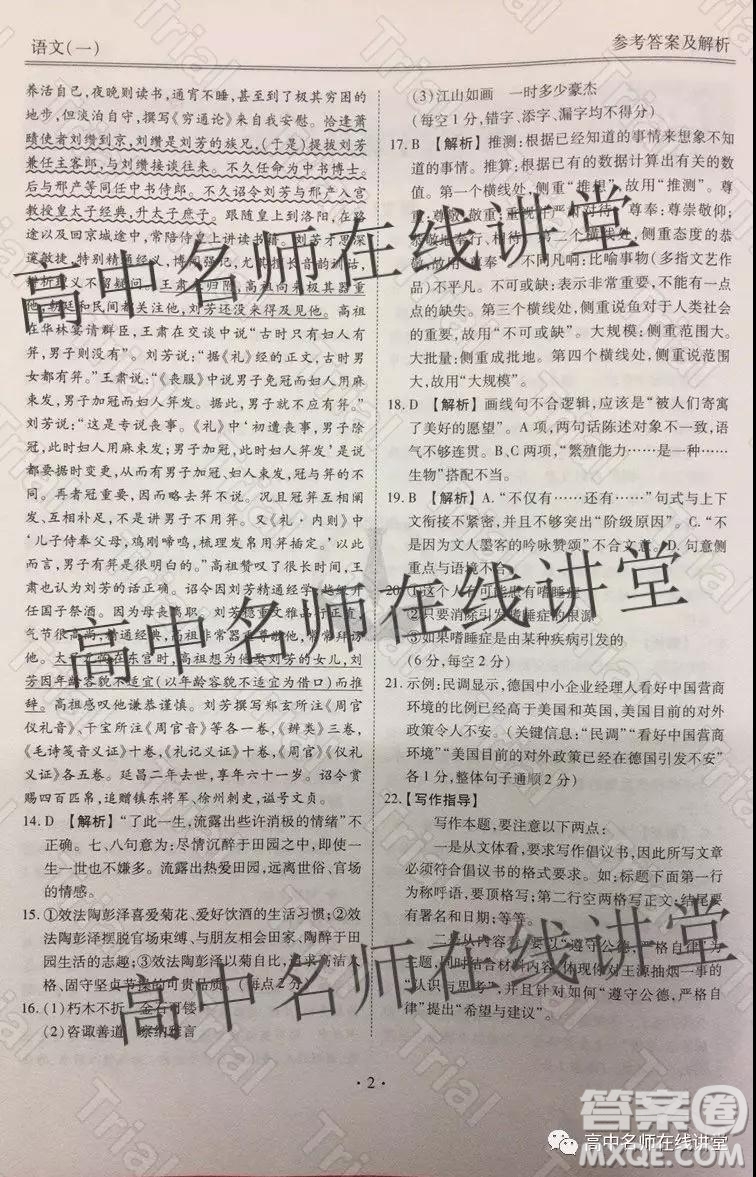 语文(一)
参考答案及解析
养活自己,夜晚则读书,通宵不睡,甚至到了极其穷困的
地步,但淡泊自守,撰写《穷通论》来自我安慰。恰逢萧
赜使者刘缵到京,刘缵是刘芳的族兄,(于是)提拔刘芳
兼任主客郎,与刘缵接谈往来。不久任命为中书博士。
后与邢产等同任中书侍郎。不久诏令刘芳与邢产入宫
教授皇太子经典,升太子庶子。跟随皇上到洛阳,在路
途以及回京城途中,常陪侍皇上讲读书籍。刘芳才思深
高祖
在华林宴请群臣,王肃在交谈中说“古时只有妇人有
笄,男子则没有”。刘芳说:“据《礼》经的正文,古时男
女都有笄。”王肃说:“《丧服》中说男子免冠而妇人用麻
束发,男子加冠而妇人笄发。据此,男子就不应有笄。”
刘芳说:“这是专说丧事。《礼》中‘初遭丧事,男子除
冠,此时妇人用麻束发;男子加冠,此时妇人笄发。’都
要据时变更,从而有男子免冠、妇人束发,冠与笄的不
同。再者冠重要,因而略去笄不说。况且冠笄互相阐
发,互相存亡,并非讲男子不用笄。又《礼·内则》中
‘儿子侍奉父母,鸡刚啼鸣,梳理发帛用笄插定。’以此
而言,男子有笄是很明白的。”高祖赞叹了很长时间,王
肃也认为刘芳的话正确。
赐。高祖感叹他谦恭谨慎。刘芳撰写郑玄所注《周官
仪礼音》、干宝所注《周官音》等各一卷,《辨类》三卷,
《毛诗笺音义证》十卷,《礼记义证》十卷,《周官》《仪礼
义证》各五卷。延昌二年去世,享年六十一岁。诏令赏
赐四百匹帛,追赠镇东将军、徐州刺史,谥号文贞。
14. D 【解析】“了此一生,流露出些许消极的情绪”不
正确。七、八句意为:尽情沉醉于田园之中,即使一
生一世也不嫌多。流露出热爱田园,远离世俗、官场
的情感。
15. ①效法陶彭泽喜爱菊花、爱好饮酒的生活习惯;②效
法陶彭泽摆脱官场束缚、与朋友相和会田家、陶醉于田
园生活的志趣;③效法陶彭泽以菊自比,追求高洁人
格、固守坚贞节操的可贵品质。(每点2分)
16. (1)朽木不折 金石可镂
(2)咨诹善道 察纳雅言
(3)江山如画 一时多少豪杰
(每空1分,错字、添字、漏字均不得分)
17. B 【解析】推测:根据已经知道的事情来想象不知
道的事情。推算:根据已有的数据计算出有关的数
值。第一个横线处,侧重“推想”,故用“推测”。尊
重:尊敬,敬重;重视并严肃对待。尊奉:尊崇敬仰;
恭敬地奉行、相待。第二个横线处,侧重态度的恭
敬,故用“尊奉”。不同凡响:比喻事物(多指文艺作
品)不平凡。不可或缺:表示非常重要,不能有一点
点的缺失。第三个横线处,侧重说鱼对于人类社会
的重要,故用“不可或缺”。大规模:侧重范围大。
大批量:侧重成批地。第四个横线处,侧重说范围
大,故用“大规模”。
18. D 【解析】画线句不合逻辑,应该是“被人们寄寓
了美好的愿望”。A项,两句话陈述对象不一致,语
气不够连贯。B、C两项,“繁殖能力……是……
生物”搭配不当。
19. B 【解析】A.“不仅有……还有……”句式与上下
文衔接不紧密,并且不够突出“阶级原因”。C.“不
是因为文人墨客的吟咏赞颂”不合文意。D.句意侧
重点与语境不合。
20. ①这个人有可能患有嗜睡症
②只要消除引发嗜睡症的根源
③如果嗜睡症是由某种疾病引发的
(6分,每空2分)
21. 示例:民调显示,德国中小企业经理人看好中国营商
环境的比例已经高于美国和英国,美国目前的对外
政策令人不安。(关键信息:“民调”“看好中国营商
环境”“美国目前的对外政策已经在德国引发不安”
各1分,整体句子通顺2分)
22.【写作指导】
写作本题,要注意以下两点:
一是从文体看,要求写作倡议书,因此所写文章
必须符合倡议书的格式要求。如:标题下面第一行
为称呼语,要顶格写;第二行空两格写正文;结尾要
有署名和日期;等等。
二是从内容看,要以“遵守公德,严格自律”为
主题,同时结合材料内容,体现你对王源抽烟一事的
“认识与思考”,并且针对如何“遵守公德,严格自
律”提出“希望与建议”。
·2·
高中名师在线讲堂
高中名师在线讲堂
高中名师在线讲堂
Trial
答案圈
MXQE.COM
高中名师在线讲堂